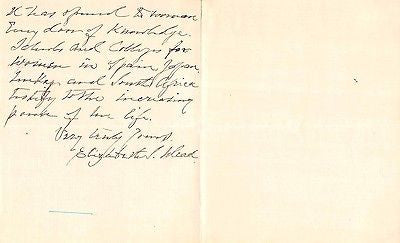 It has opened to woman
Every door of Knowledge.
Schools and Colleges for
Women in Spain, Japan,
Turkey and South Africa
testify to the increasing
power of her life.
Very truly Yours,
Elizabeth S. Mead.